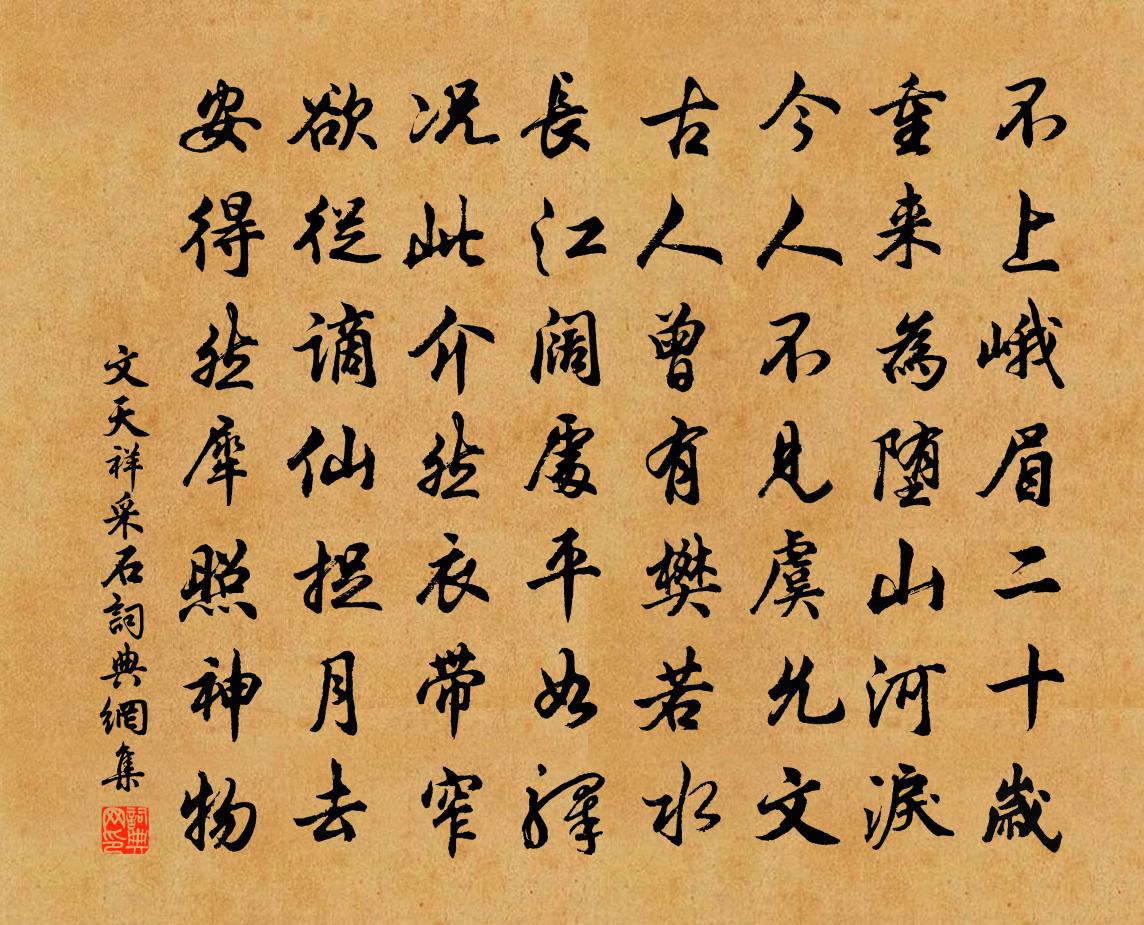 不上峨眉二十歲
重来為堕山河淚
今人不見虞允文
古人曾有樊若水
長江闊處平如驛
况此介然衣帶窄
欲從謫仙捉月去
安得然犀照神物
文天祥采石詞典網集
詞典网印